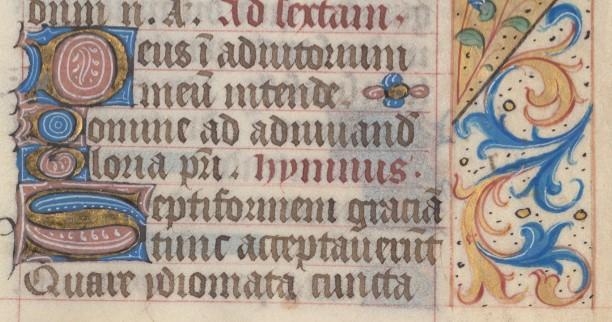 dum n. A. Ad sextam.
Deus ī adiutorium
meū intende.
Domine ad adiuuand̄
Gloria pr̄i. hymnus.
Septiformem graciā
tunc acceptauerūt
Quare ydiomata cuncta